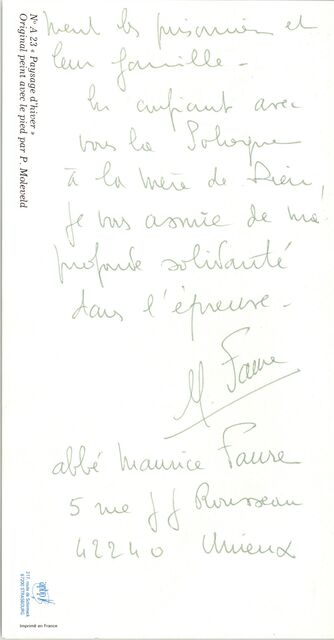 ment les prisonniers et
leur famille -
En confiant avec
vous la Pologne
à la mère de Dieu,
je vous assure de ma
profonde solidarité
dans l'épreuve -
M. Faure
abbé Maurice Faure
5 rue JJ Rousseau
42240 Unieux
N° A 23 « Paysage d'hiver »
Original peint avec le pied par P. Moleveld
67200 STRASBOURG
Imprimé en France